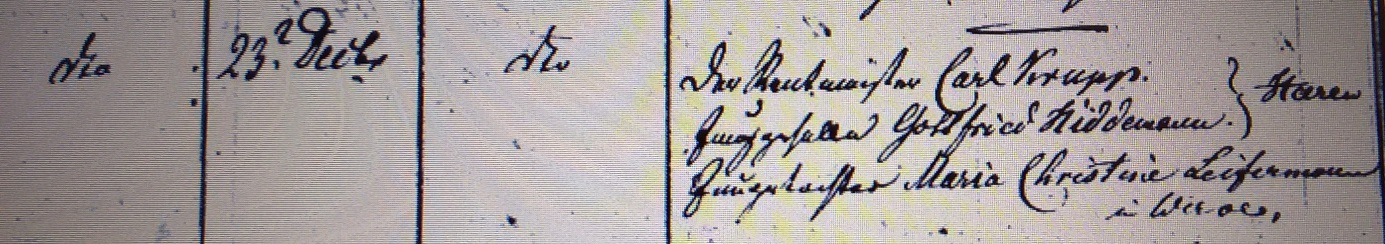 dto 23ᵗ Decbr dto
Der Rentmeister Carl Krupp.
Junggesellen Gottfried Hiddemann. } Haaren
Jungetochter Maria Christine Leifermann
in